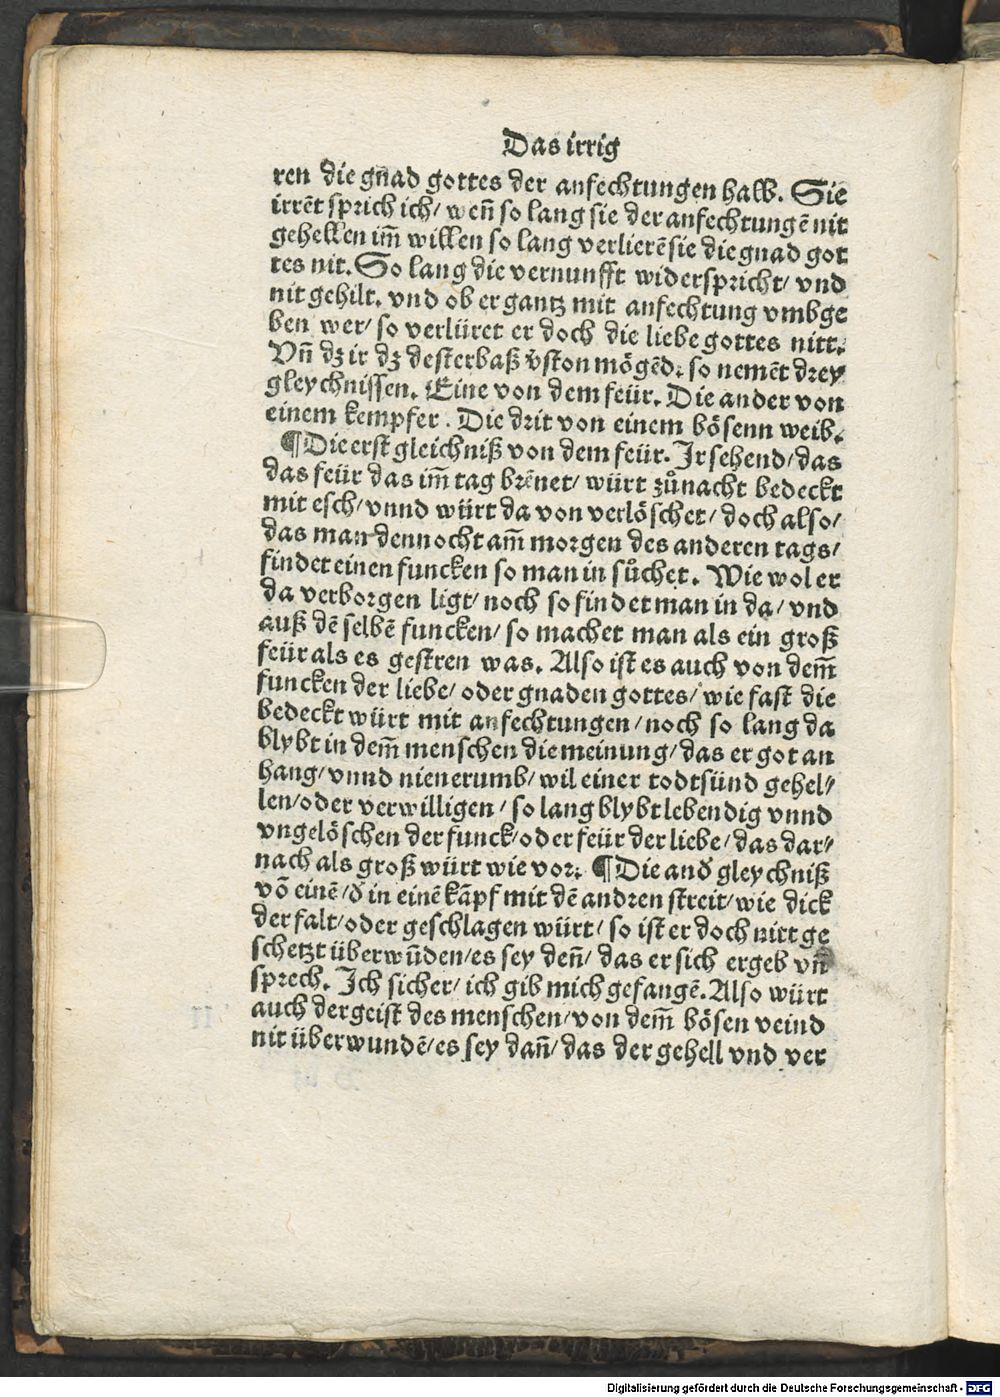 Das irrig
ren die gnad gottes der anfechtungen halb. Sie
irrēt sprich ich/ weñ so lang sie der anfechtungē nit
gehellen im̃ willen so lang verlierē sie die gnad got
tes nit. So lang die vernunfft widerspricht/ vnd
nit gehilt. vnd ob er gantz mit anfechtung vmbge
ben wer/ so verlüret er doch die liebe gottes nitt.
Vñ dz ir dz desterbaß v̄ston mögēd. so nemēt drey
gleychnissen. Eine von dem feür. Die ander von
einem kempfer. Die drit von einem bösenn weib.
¶Die erst gleichniß von dem feür. Ir sehend/ das
das feür das im̃ tag brēnet/ würt zůnacht bedeckt
mit esch/ vnnd würt da von verlöschet/ doch also/
das man dennocht am̃ morgen des anderen tags/
findet einen funcken so man in sůchet. Wie wol er
da verborgen ligt/ noch so findet man in da/ vnd
auß dē selbē funcken/ so machet man als ein groß
feür als es gestren was. Also ist es auch von dem̃
funcken der liebe/ oder gnaden gottes/ wie fast die
bedeckt würt mit anfechtungen/ noch so lang da
blybt in dem̃ menschen die meinung/ das er got an
hang/ vnnd nienerumb/ wil einer todtsünd gehel⸗
len/ oder verwilligen/ so lang blybt lebendig vnnd
vngelöschen der funck/ oder feür der liebe/ das dar⸗
nach als groß würt wie vor. ¶Die and̄ gleychniß
vō einē/ d̄ in einē kāpf mit dē andren streit/ wie dick
der falt/ oder geschlagen würt/ so ist er doch nitt ge
schetzt überwūden/ es sey deñ/ das er sich ergeb vñ
sprech. Ich sicher/ ich gib mich gefangē. Also würt
auch der geist des menschen/ von dem̃ bösen veind
nit überwundē/ es sey dañ/ das der gehell vnd ver
Digitalisierung gefördert durch die Deutsche Forschungsgemeinschaft - DFG